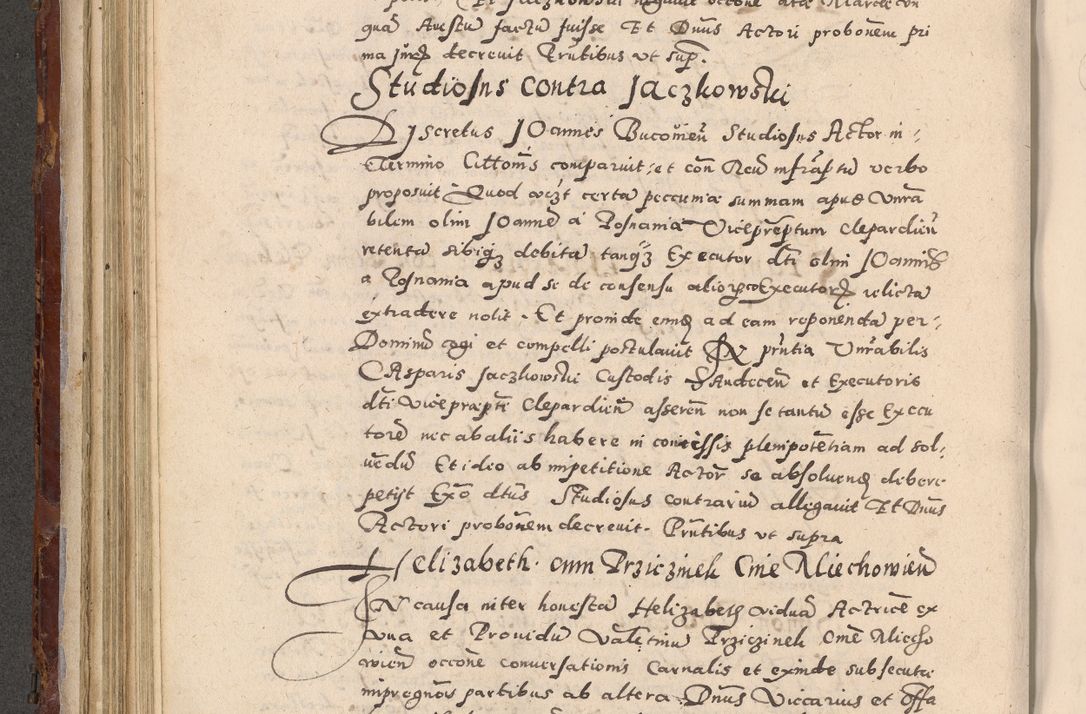 quā Auctū factū fuisse Et Dnūs Actori probonēm pri
ma Jurid decrevit Prntibus vt sup.
Studiosus contra Jaczkowski
DIscretus JOannes Buconień Studiosus Actor in
Termino Cittonis comparuit, et con Reū infraptū verbo
proposuit Quod certa peccuniæ summam apud Vnra
bilem olim JOannē a Posnania Viceprēptum Clepardień
retenta sibiq debita tanqз Executor dti olim JOannis
a Posnania apud se de consensu aliorq coExecutorz relicta
extradere nolit. Et proinde eumq ad eam reponenda per
Dominū cogi et compelli postulauit IN prntia Vnrabilis
CAsparis Jaczkowski Custodis SAndecen et Executoris
dti Vicepræpti Clepardień asseren non se tantū esse Execu
torē nec ab aliis habere in concessis plenipotētiam ad sol
uēdū Et ideo ab impetitione Actor se absoluend debere
petijt Exō dtus Studiosus contrariū allegauit Et Dnūs
Actori probonem decreuit. Prntibus vt supra
Helizabeth cum Prziczinek Cine Miechowień
IN causa inter honesta Helizabeth vidua Actricē ex
vna et Prouidū Valētinū Prziczinek Cinē Miecho
wień occōne conuersationis Carnalis et exinde subsecutæ
impregnōs partibus ab altera Dnūs Viccarius et Offa